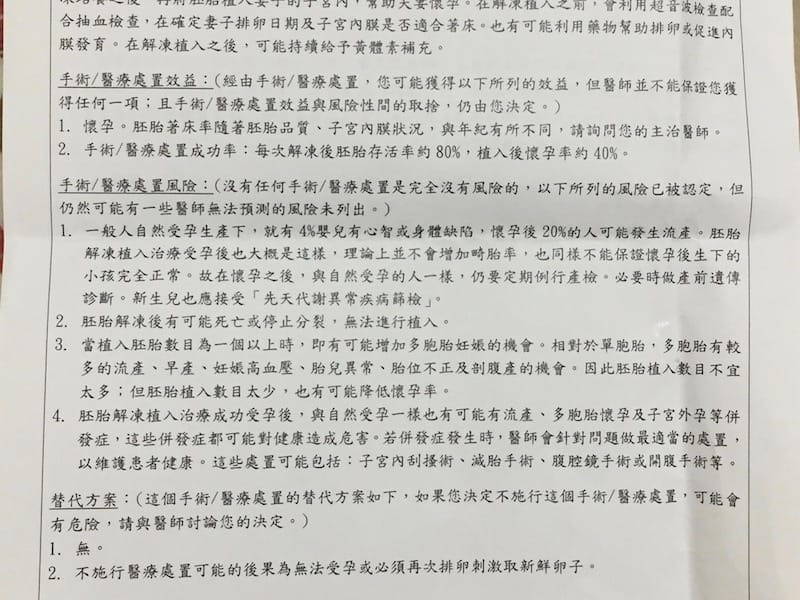 之後，再將胚胎植入妻子的子宮內，幫助夫妻懷孕。在解凍植入之前，會利用超音波檢查配
合抽血檢查，在確定妻子排卵日期及子宮內膜是否適合著床。也有可能利用藥物幫助排卵或促進內
膜發育。在解凍植入之後，可能持續給予黃體素補充。
手術/醫療處置效益：(經由手術/醫療處置，您可能獲得以下所列的效益，但醫師並不能保證您獲
得任何一項；且手術/醫療處置效益與風險性間的取捨，仍由您決定。)
1. 懷孕。胚胎著床率隨著胚胎品質、子宮內膜狀況，與年紀有所不同，請詢問您的主治醫師。
2. 手術/醫療處置成功率：每次解凍後胚胎存活率約 80%，植入後懷孕率約 40%。
手術/醫療處置風險：(沒有任何手術/醫療處置是完全沒有風險的，以下所列的風險已被認定，但
仍然可能有一些醫師無法預測的風險未列出。)
1. 一般人自然受孕生產下，就有 4%嬰兒有心智或身體缺陷，懷孕後 20%的人可能發生流產。胚胎
解凍植入治療受孕後也大概是這樣，理論上並不會增加畸胎率，也同樣不能保證懷孕後生下的
小孩完全正常。故在懷孕之後，與自然受孕的人一樣，仍要定期例行產檢。必要時做產前遺傳
診斷。新生兒也應接受「先天代謝異常疾病篩檢」。
2. 胚胎解凍後有可能死亡或停止分裂，無法進行植入。
3. 當植入胚胎數目為一個以上時，即有可能增加多胞胎妊娠的機會。相對於單胞胎，多胞胎有較
多的流產、早產、妊娠高血壓、胎兒異常、胎位不正及剖腹產的機會。因此胚胎植入數目不宜
太多；但胚胎植入數目太少，也有可能降低懷孕率。
4. 胚胎解凍植入治療成功受孕後，與自然受孕一樣也有可能有流產、多胞胎懷孕及子宮外孕等併
發症，這些併發症都可能對健康造成危害。若併發症發生時，醫師會針對問題做最適當的處置，
以維護患者健康。這些處置可能包括：子宮內刮搔術、減胎手術、腹腔鏡手術或開腹手術等。
替代方案：(這個手術/醫療處置的替代方案如下，如果您決定不施行這個手術/醫療處置，可能會
有危險，請與醫師討論您的決定。)
1. 無。
2. 不施行醫療處置可能的後果為無法受孕或必須再次排卵刺激取新鮮卵子。